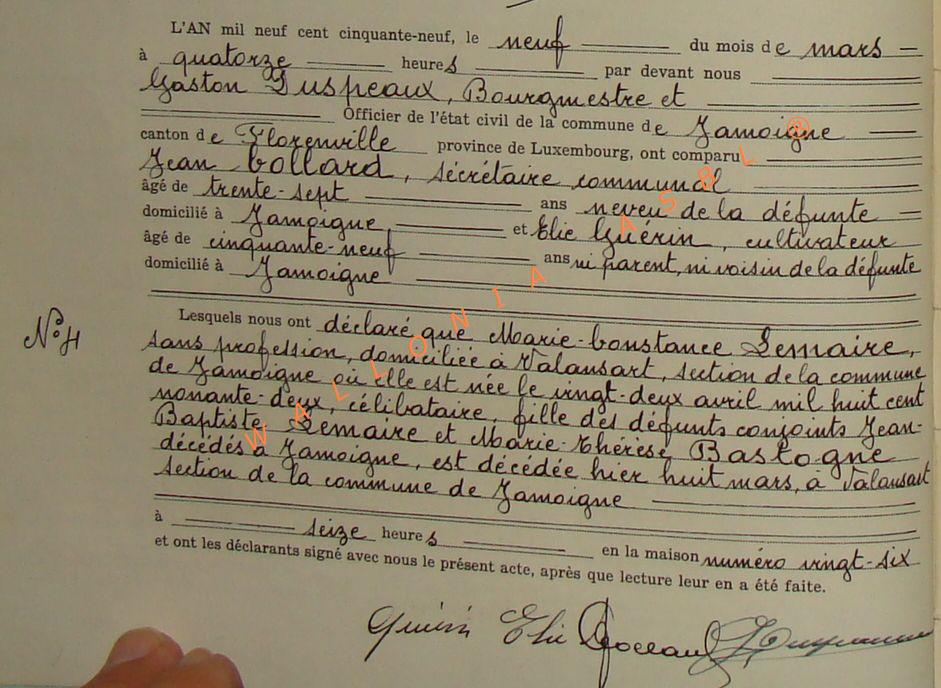 L'AN mil neuf cent cinquante-neuf, le neuf du mois de mars
à quatorze heures par devant nous
Gaston Duspeaux, Bourgmestre et
Officier de l'état civil de la commune de Jamoigne
canton de Florenville province de Luxembourg, ont comparu
Jean Collard, secrétaire communal
âgé de trente-sept ans neveu de la défunte
domicilié à Jamoigne et Elie Guérin, cultivateur
âgé de cinquante-neuf ans ni parent, ni voisin de la défunte
domicilié à Jamoigne
N° 4
Lesquels nous ont déclaré que Marie-Constance Lemaire,
sans profession, domiciliée à Valansart, section de la commune
de Jamoigne où elle est née le vingt-deux avril mil huit cent
nonante-deux, célibataire, fille des défunts conjoints Jean-
Baptiste Lemaire et Marie-Thérèse Bastogne
décédés à Jamoigne, est décédée hier huit mars, à Valansart
section de la commune de Jamoigne
à seize heures en la maison numéro vingt-six
et ont les déclarants signé avec nous le présent acte, après que lecture leur en a été faite.
Guérin Elie
WALLONIA ASBL ®